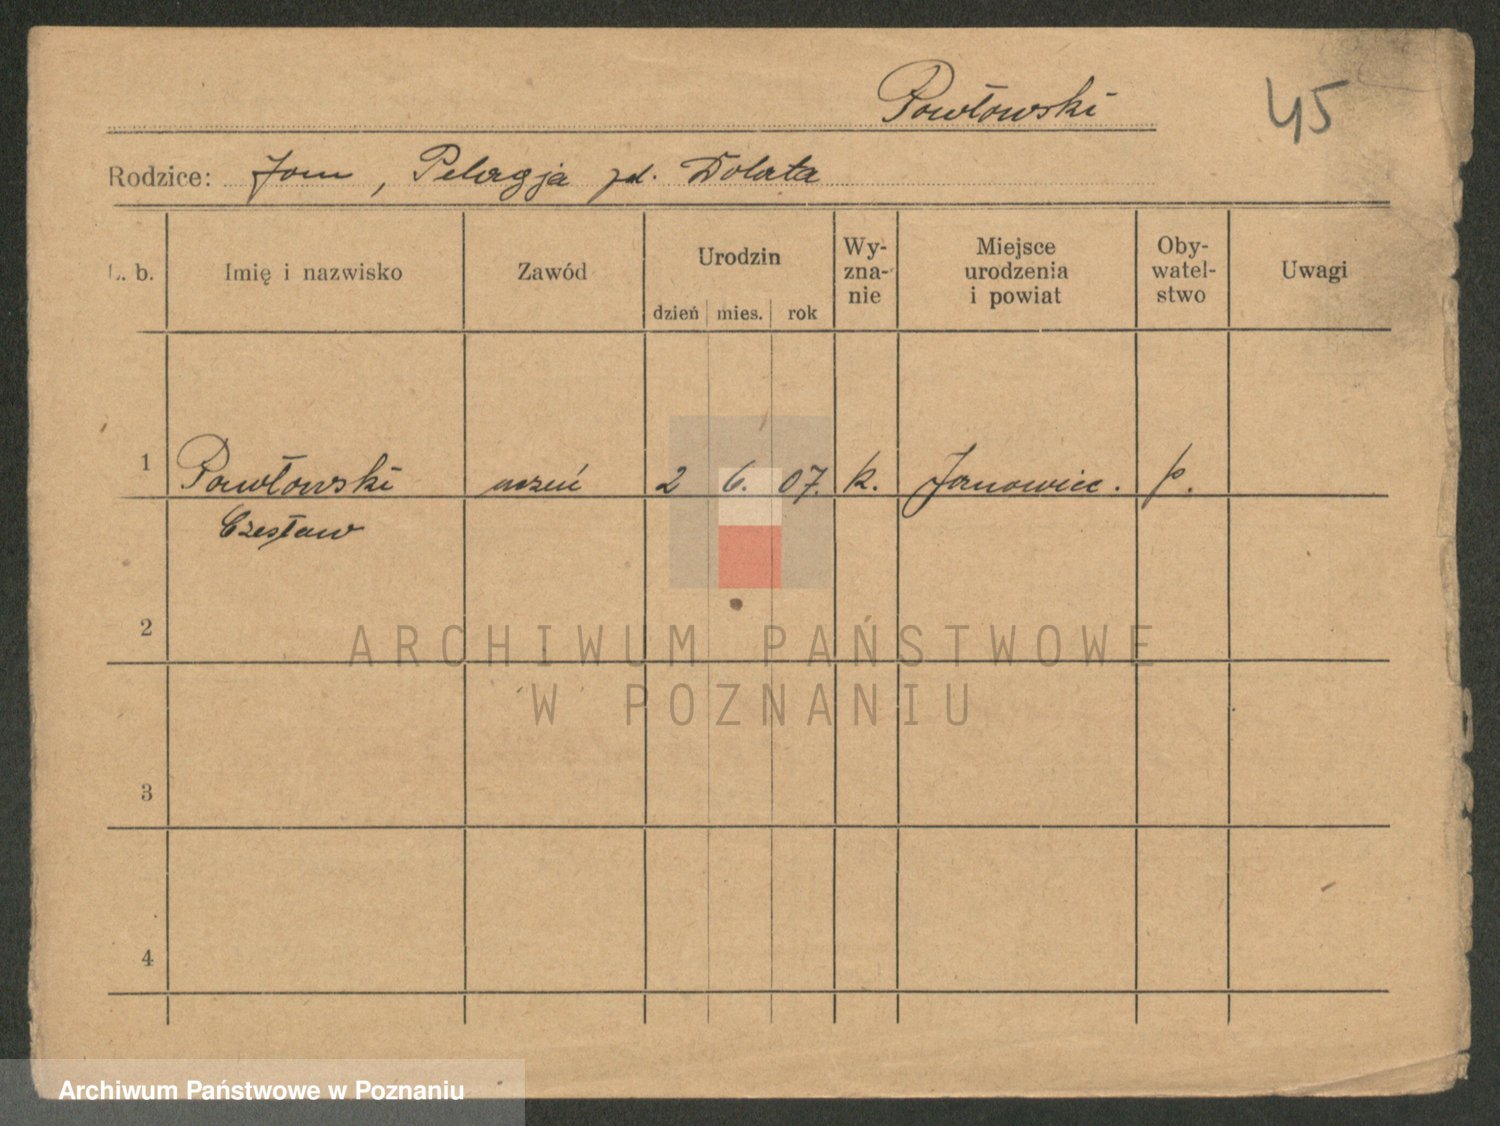 Pawłowski
45
Rodzice: Jan, Pelagja zd. Dolata
L. b.
Imię i nazwisko
Zawód
Urodzin
dzień mies. rok
Wy-
zna-
nie
Miejsce
urodzenia
i powiat
Oby-
watel-
stwo
Uwagi
1 Pawłowski uczeń 2 6. 07. k. Janowiec. p.
Czesław
2
3
4
ARCHIWUM PAŃSTWOWE
W POZNANIU
Archiwum Państwowe w Poznaniu